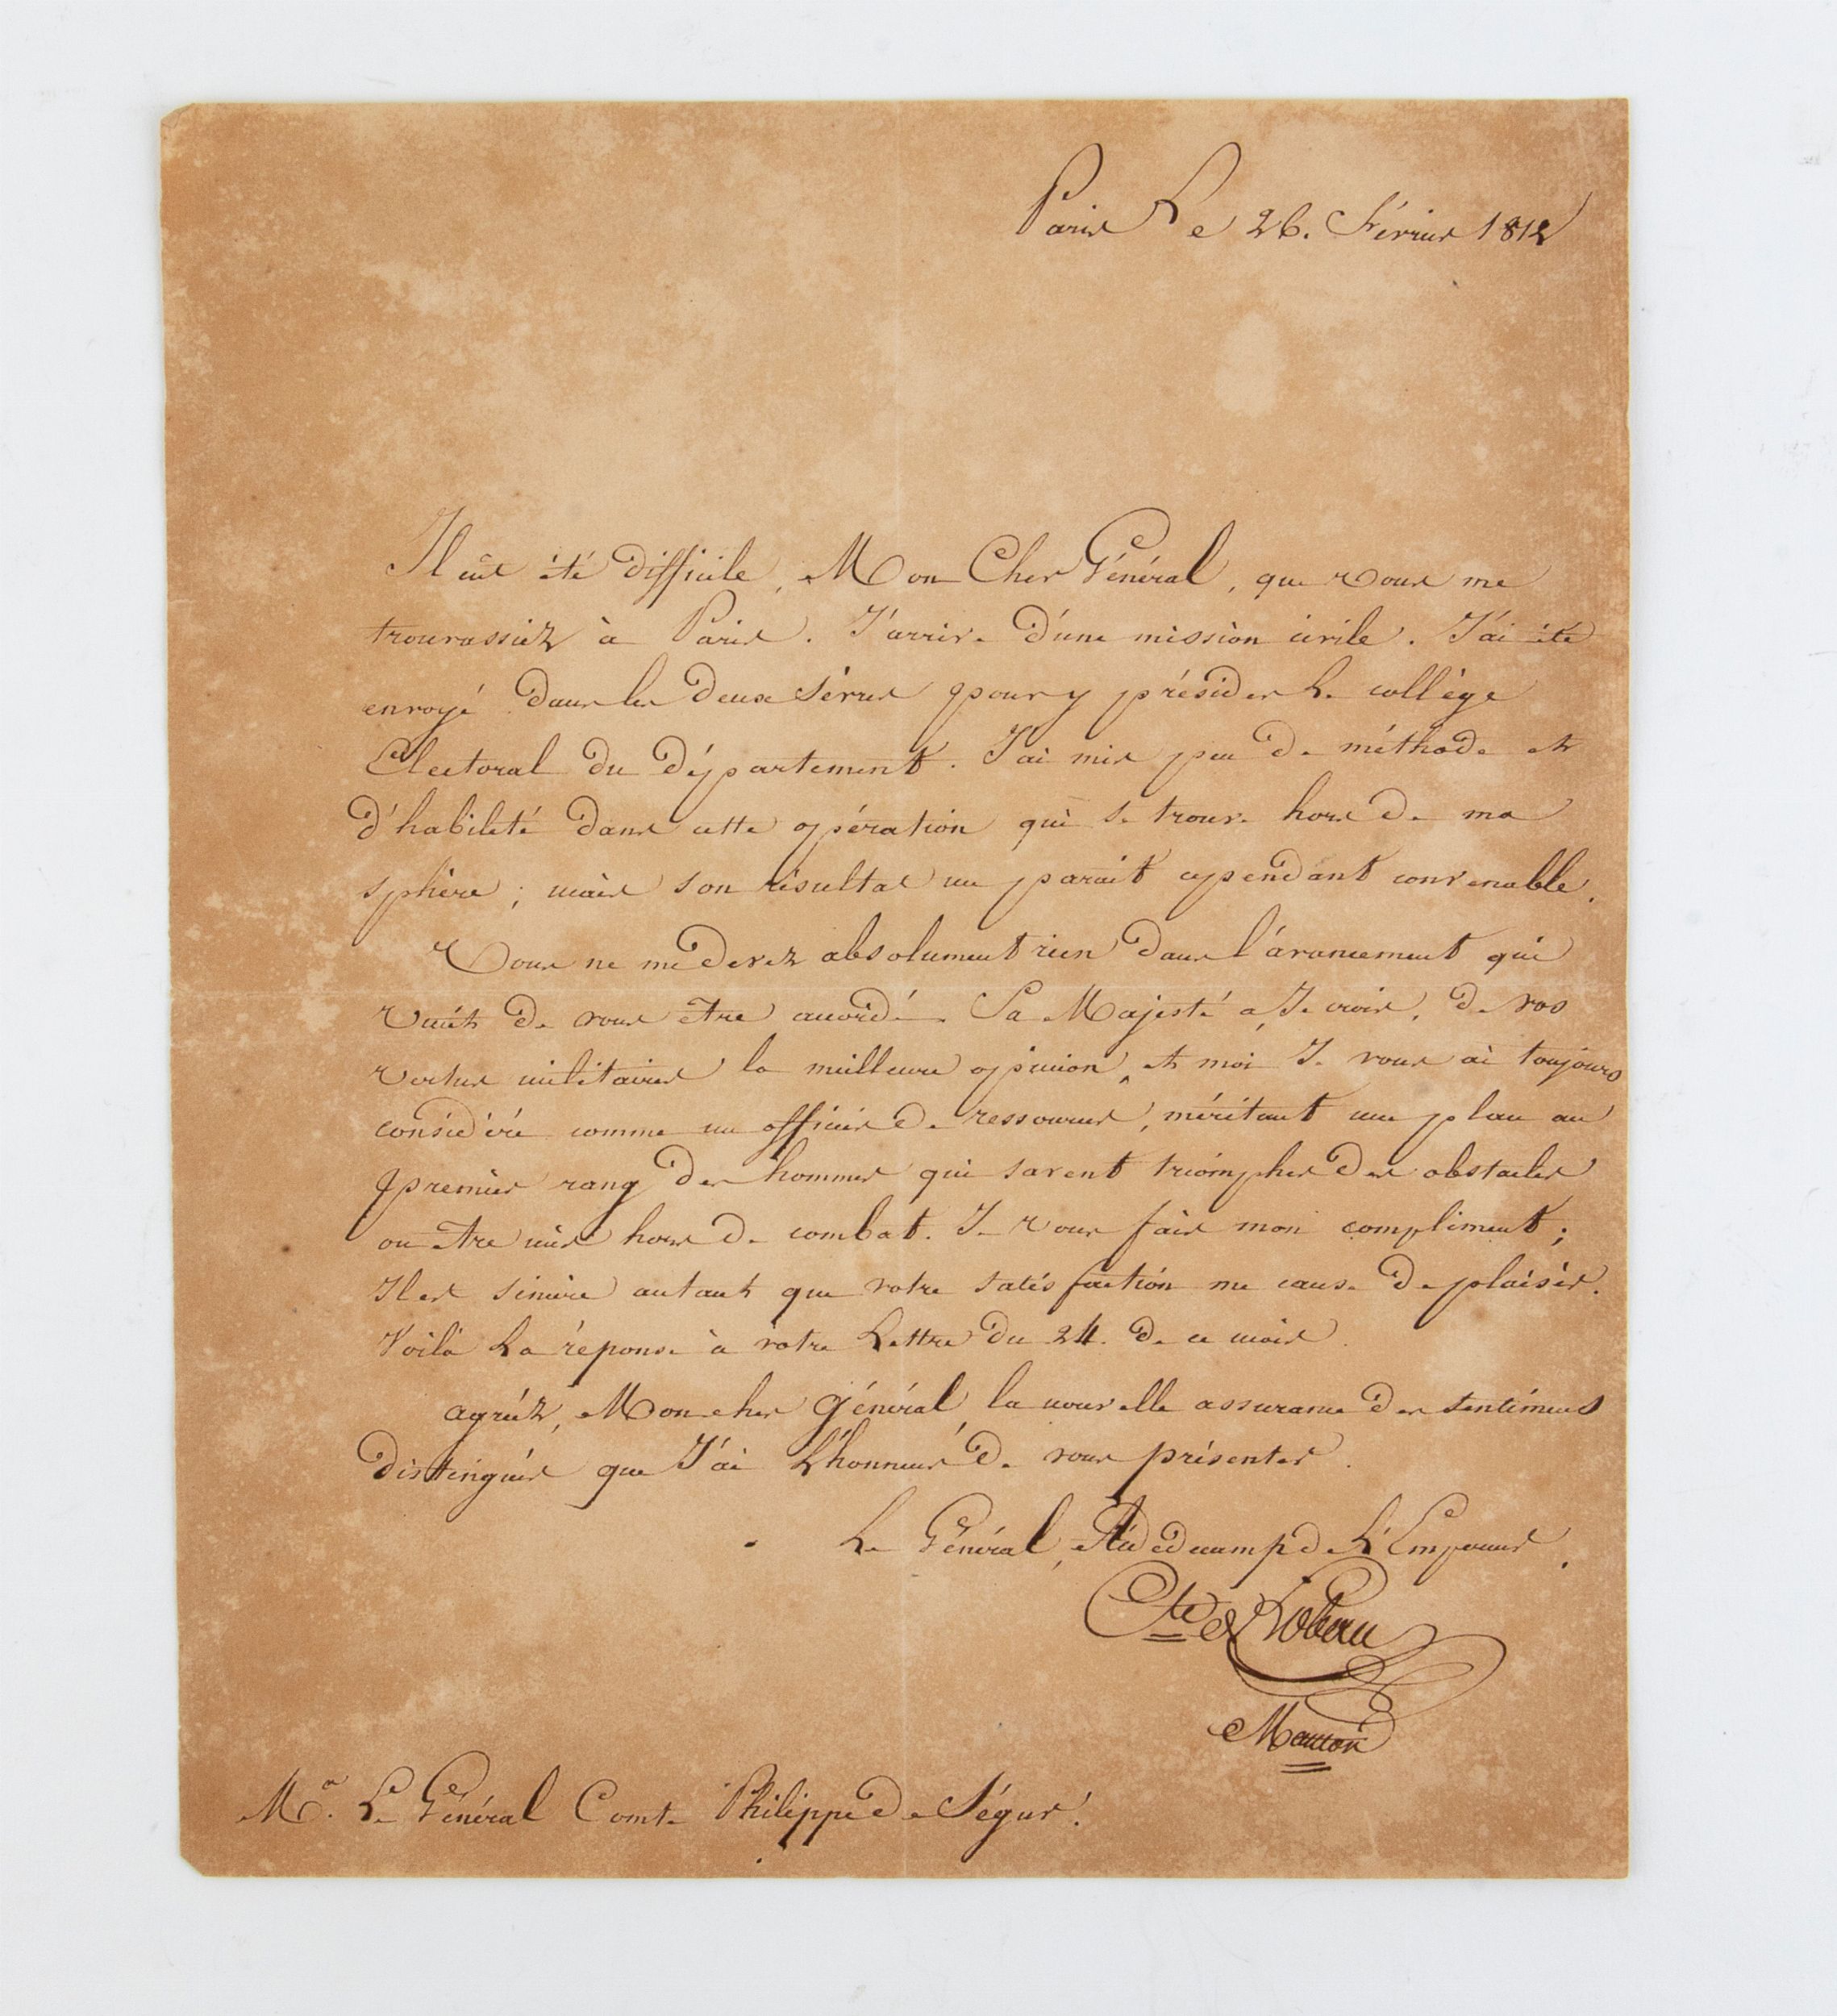 Paris Le 26. Février 1812
Il eut été difficile, Mon Cher Général, que vous me
trouvassiez à Paris. J'arrive d'une mission civile. J'ai été
envoyé dans les deux Sèvres pour y présider Le collège
Electoral du Département. J'ai mis peu de méthode et
d'habileté dans cette opération qui se trouve hors de ma
sphère ; mais son résultat me parait cependant convenable.
Vous ne me devez absolument rien dans l'avancement qui
vient de vous être accordé. Sa Majesté a, Je crois, de vos
vertus militaires la meilleure opinion, et moi Je vous ai toujours
considéré comme un officier de ressources, méritant une place au
premier rang des hommes qui savent triompher des obstacles
ou être mis hors de combat. Je vous fais mon compliment ;
Il est sincère autant que votre satisfaction me cause de plaisir.
Voilà La réponse à votre Lettre du 24. de ce mois.
agréez, Mon cher Général, la nouvelle assurance des sentimens
distingués que J'ai L'honneur de vous présenter.
Le Général, Aide de camp de L'Empereur.
Cte de Lobau
Mouton
Mr. Le Général Comte Philippe de Ségur.